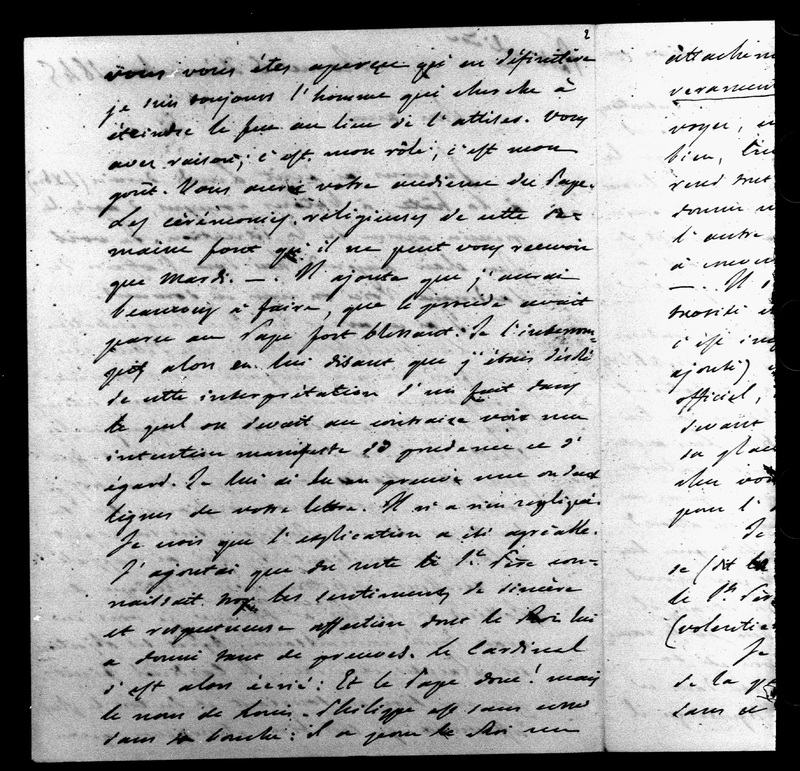 2
vous vous êtes aperçue qu'en définitive
je suis toujours l'homme qui cherche à
éteindre le feu au lieu de l'attiser. Vous
avez raison; c'est mon rôle, c'est mon
goût. Vous aurez votre audience du Pape.
Les cérémonies religieuses de cette se-
maine font qu'il ne peut vous recevoir
que Mardi. —. Il ajouta que j'aurai
beaucoup à faire, que le procédé avait
paru au Pape fort blessant. Je l'interrom-
pis alors en lui disant que j'étais désolé
de cette interprétation d'un fait dans
le quel on devait au contraire voir une
intention manifeste de prudence et d'
égard. Je lui ai lu en preuve une ou deux
lignes de votre lettre. Il n'a rien repliqué.
Je crois que l'explication a été agréable.
J'ajoutai que du reste le St. Père con-
naissait les sentiments de sincère
et respectueuse affection dont le Roi lui
a donné tant de preuves. Le Cardinal
s'est alors écrié: Et le Pape donc! mais
le nom de Louis-Philippe est sans cesse
dans sa bouche: il a pour le Roi une
attachem
verament
voyez, e
bien,
rend tout
donne
l'autre
à
—. Il
c'est
ajouta)
officiel,
devant
sa place
chez vou
pour l'
Je
se (dit
le St. Pèr
(volentie
Je
de la
sans ce